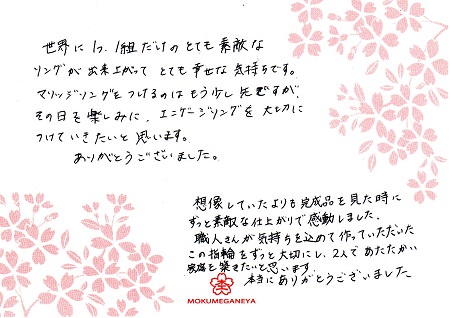 世界に1つ、1組だけのとても素敵な
リングが出来上がってとても幸せな気持ちです。
マリッジリングをつけるのはもう少し先ですが、
その日を楽しみに、エンゲージリングを大切に
つけていきたいと思います。
ありがとうございました。
想像していたよりも完成品を見た時に
ずっと素敵な仕上がりで感動しました。
職人さんが気持ちを込めて作っていただいた
この指輪をずっと大切にし、2人であたたかい
家庭を築きたいと思います。
本当にありがとうございました
MOKUMEGANEYA